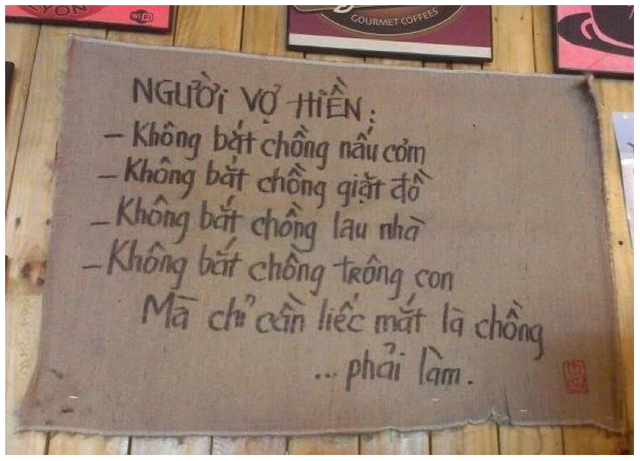 YON
WiFi
GOURMET COFFEES
NGƯỜI VỢ HIỀN:
- Không bắt chồng nấu cơm
- Không bắt chồng giặt đồ
- Không bắt chồng lau nhà
- Không bắt chồng trông con
Mà chỉ cần liếc mắt là chồng
... phải làm.